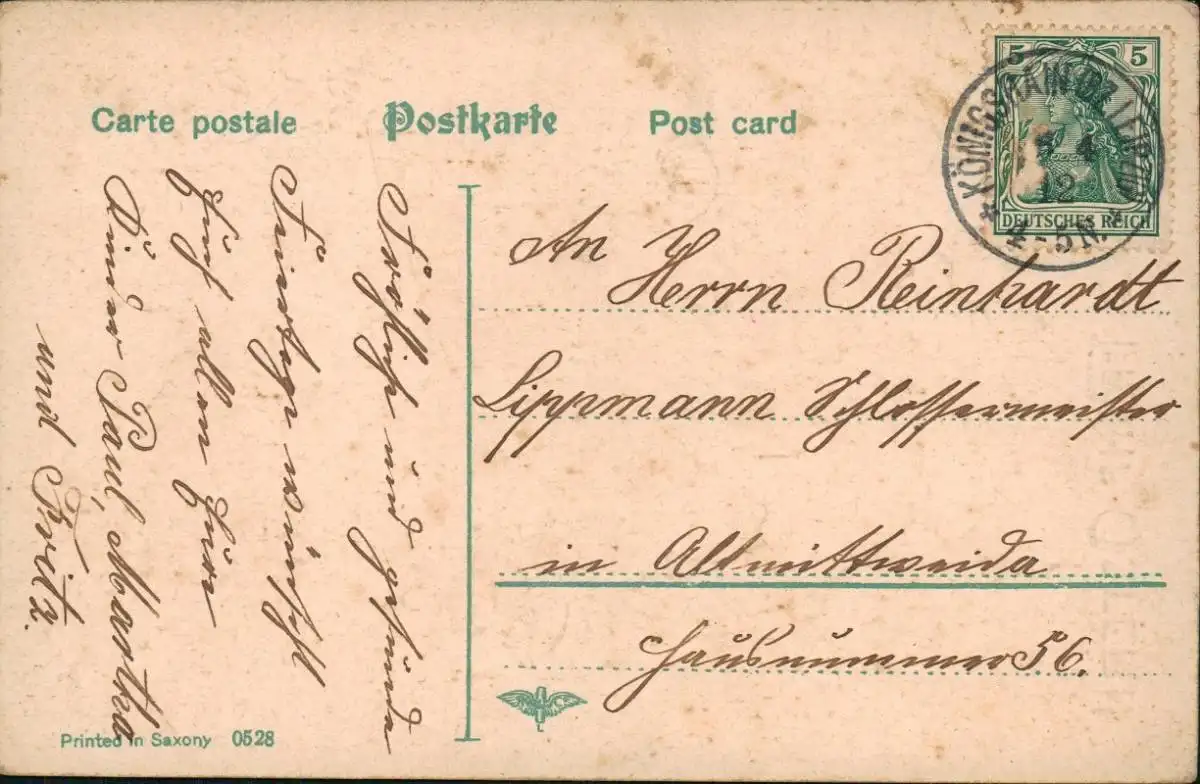 Carte postale Postkarte Post card
5 5
DEUTSCHES REICH
KÖNIGSHAIN BZ. LEIPZIG
4-5 N.
An
Herrn Reinhardt
Lippmann Schlossermeister
in Altmittweida
Hausnummer 56.
Fröhliche und gesunde
Feiertage wünscht
Euch allen Eure
Minna Paul, Martha
und Fritz.
Printed in Saxony 0528